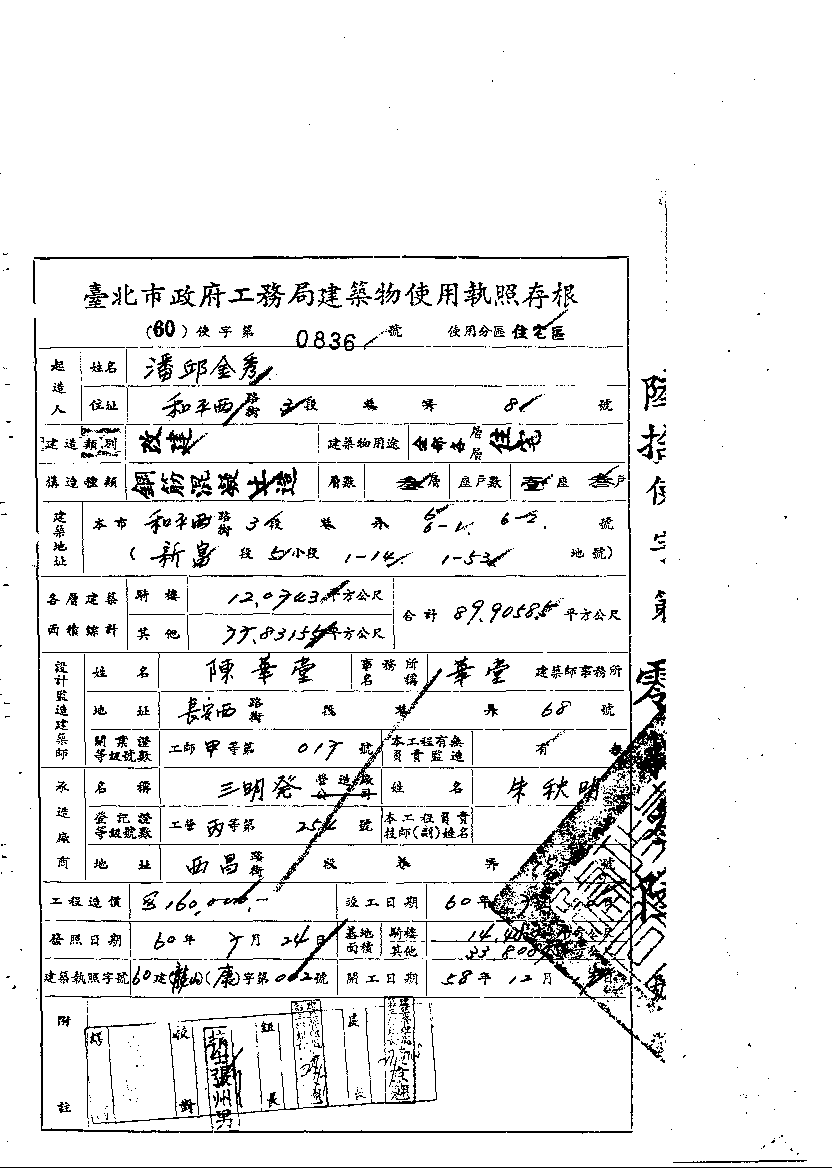 臺北市政府工務局建築物使用執照存根
(60)使字第 0836 號 使用分區 住宅區
起造人 姓名 潘邱金秀
住址 和平西 路街 3 段 巷 弄 81 號
建造類別 改建 建築物用途 全部各層層 住宅
構造種類 鋼筋混凝土造 層數 層 座戶數 座 戶
建築地址 本市 和平西 路街 3 段 巷 弄 6 6-1 6-2 號
( 新富 段 5 小段 1-14 1-53 地號)
各層建築面積綜計 騎樓 12.0743 平方公尺 合計 89.9058 平方公尺
其他 77.8315 平方公尺
設計監造建築師 姓名 陳華堂 事務所名稱 華堂 建築師事務所
地址 長安西 路街 段 巷 弄 68 號
開業證等級號數 工師 甲 等第 號 本工程有無負責監造 有
承造廠商 名稱 三明發 營造廠公司 姓名 朱秋明
登記證等級號數 工營 丙 等第 號 本工程負責技師(副)姓名
地址 西昌 路街 段 巷 弄 號
工程造價 160,000.- 竣工日期 60 年
發照日期 60 年 月 24 日 基地面積 騎樓 14.
其他 33.800
建築執照字號 60 建 (康)字第 002 號 開工日期 58 年 12 月
附註 校對 張州男 組長 長
陸拾使字第零